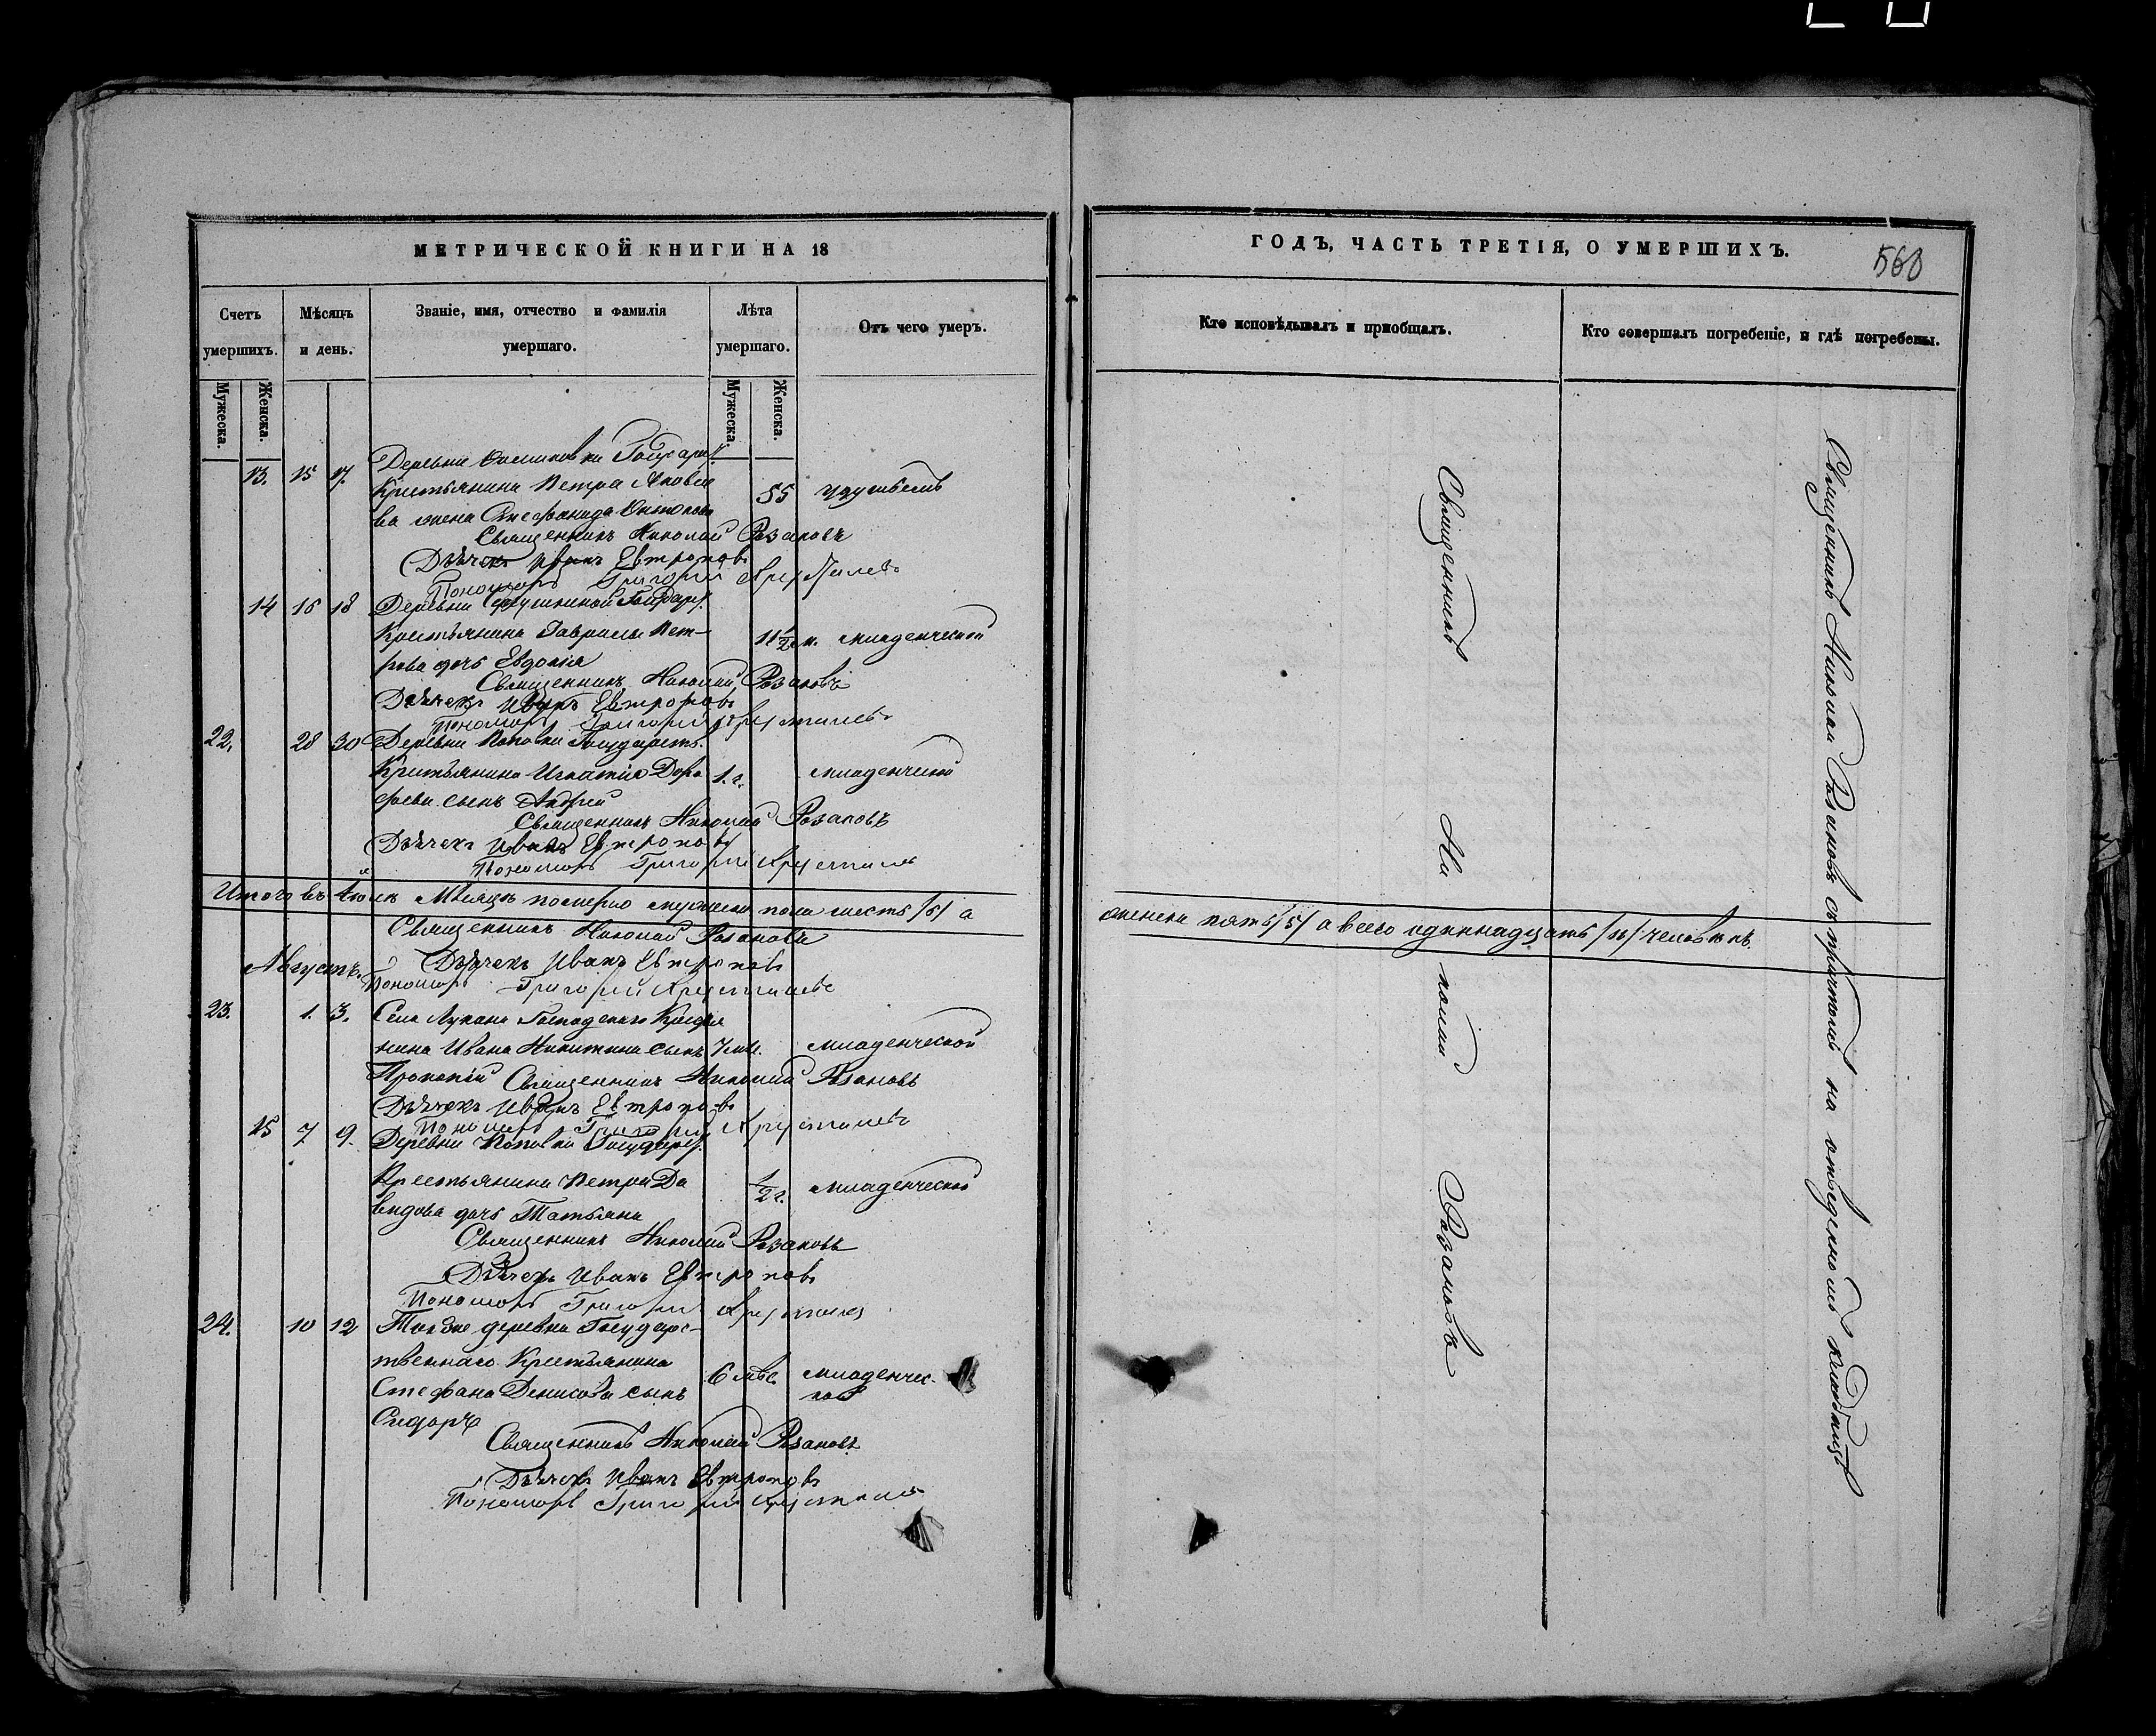 МЕТРИЧЕСКОЙ КНИГИ НА 18
Счетъ умершихъ.
Мѣсяцъ и день.
Званіе, имя, отчество и фамилія умершаго.
Лѣта умершаго.
Отъ чего умеръ.
Мужеска.
Женска.
Мужеска.
Женска.
13. 15 17. Деревни
Крестьянина Петра Яковле 55
ва жена Стефанида
Священникъ Николай Розановъ
Дьячекъ Иванъ Евтроповъ
Пономарь Григорій
14 16 18 Деревни
Крестьянина Гаврилы Пет- 11 1/2 м. младенческой
рова дочь Евдокія
Священникъ Николай Розановъ
Дьячекъ Иванъ Евтроповъ
Пономарь Григорій
22. 28 30 Деревни Поповки Государств.
Крестьянина Игнатія Доро 1. г. младенческой
феева сынъ Андрей
Священникъ Николай Розановъ
Дьячекъ Иванъ Евтроповъ
Пономарь Григорій
Итого въ Іюлѣ Мѣсяцѣ померло мужеска пола шесть /6/ а
Священникъ Николай Розановъ
Августъ. Дьячекъ Иванъ Евтроповъ
Пономарь Григорій
23. 1. 3. Села
нина Ивана Никитина сынъ 7 м. младенческой
Прокопій Священникъ Николай Розановъ
Дьячекъ Иванъ Евтроповъ
Пономарь Григорій
15 7 9. Деревни Поповки
Крестьянина Петра Да 1/2 г. младенческой
видова дочь Татьяна
Священникъ Николай Розановъ
Дьячекъ Иванъ Евтроповъ
Пономарь Григорій
24. 10 12 Той же деревни Государс-
твеннаго Крестьянина
Стефана Денисова сынъ 6 мѣс младенчес-
кой
Сидоръ
Священникъ Николай Розановъ
Дьячекъ Иванъ Евтроповъ
Пономарь Григорій
ГОДЪ, ЧАСТЬ ТРЕТІЯ, О УМЕРШИХЪ.
560
Кто исповѣдывалъ и пріобщалъ.
Кто совершалъ погребеніе, и гдѣ погребены.
женска пять /5/ а всего одиннадцать /11/ человѣкъ.
Священникъ Николай Розановъ
Священникъ Николай Розановъ съ причтомъ на отведенномъ кладбищѣ